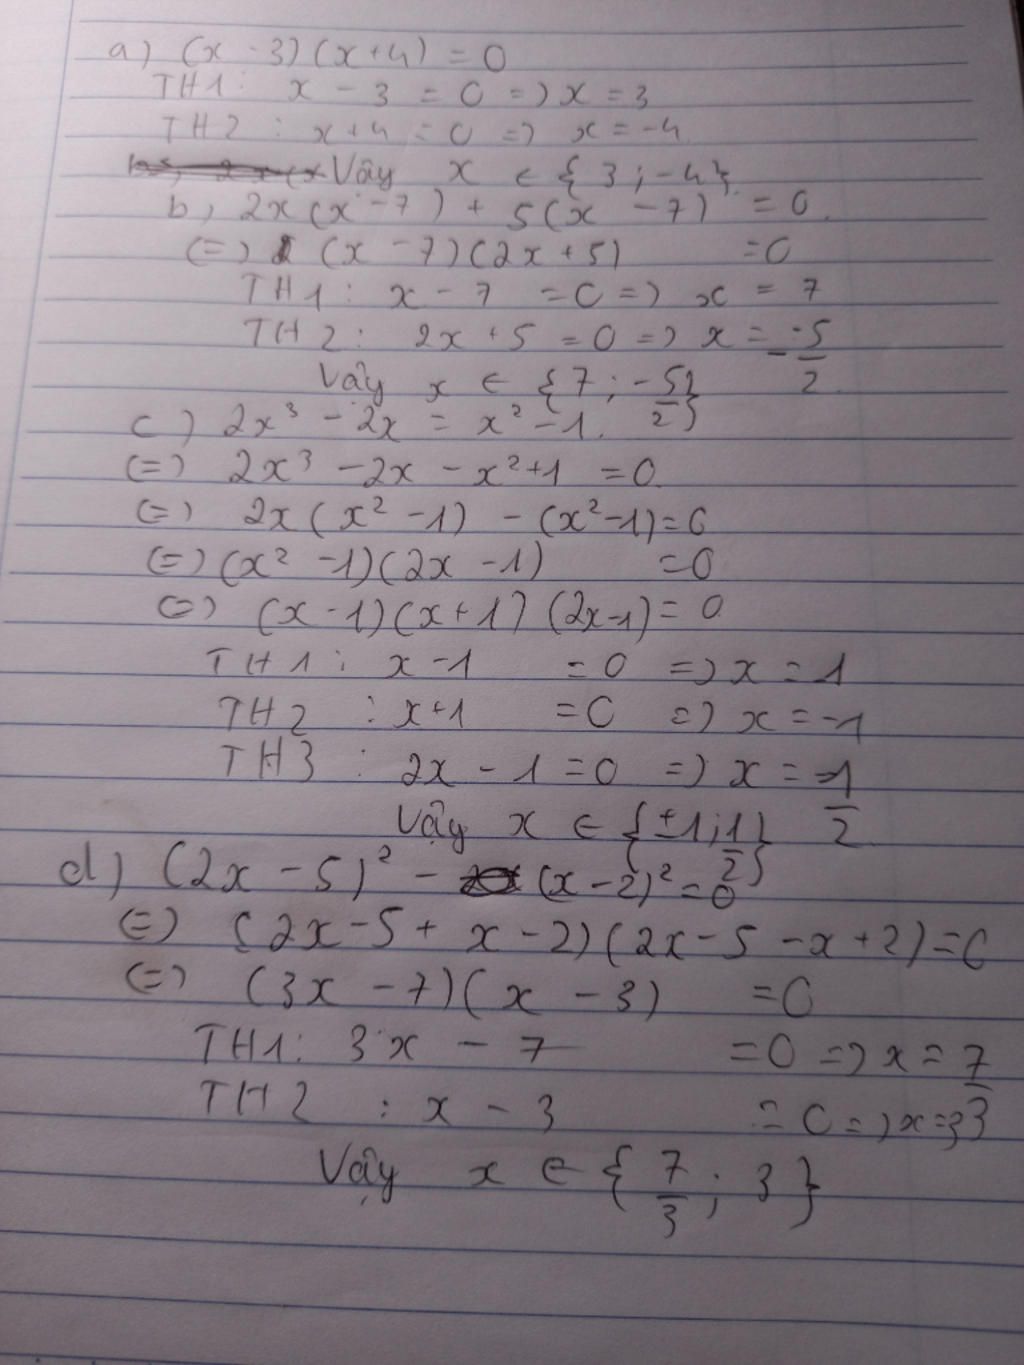 a) (x - 3)(x + 4) = 0
TH1: x - 3 = 0 => x = 3
TH2: x + 4 = 0 => x = -4
Vậy x ∈ {3; -4}.
b) 2x(x - 7) + 5(x - 7) = 0.
(=) (x - 7)(2x + 5) = 0
TH1: x - 7 = 0 => x = 7
TH2: 2x + 5 = 0 => x = -5/2
Vậy x ∈ {7; -5/2}
c) 2x³ - 2x = x² - 1.
(=) 2x³ - 2x - x² + 1 = 0.
(=) 2x(x² - 1) - (x² - 1) = 0
(=) (x² - 1)(2x - 1) = 0
(=) (x - 1)(x + 1)(2x - 1) = 0
TH1: x - 1 = 0 => x = 1
TH2: x + 1 = 0 => x = -1
TH3: 2x - 1 = 0 => x = 1/2
Vậy x ∈ {±1; 1/2}
d) (2x - 5)² - (x - 2)² = 0
(=) (2x - 5 + x - 2)(2x - 5 - x + 2) = 0
(=) (3x - 7)(x - 3) = 0
TH1: 3x - 7 = 0 => x = 7/3
TH2: x - 3 = 0 => x = 3
Vậy x ∈ {7/3; 3}